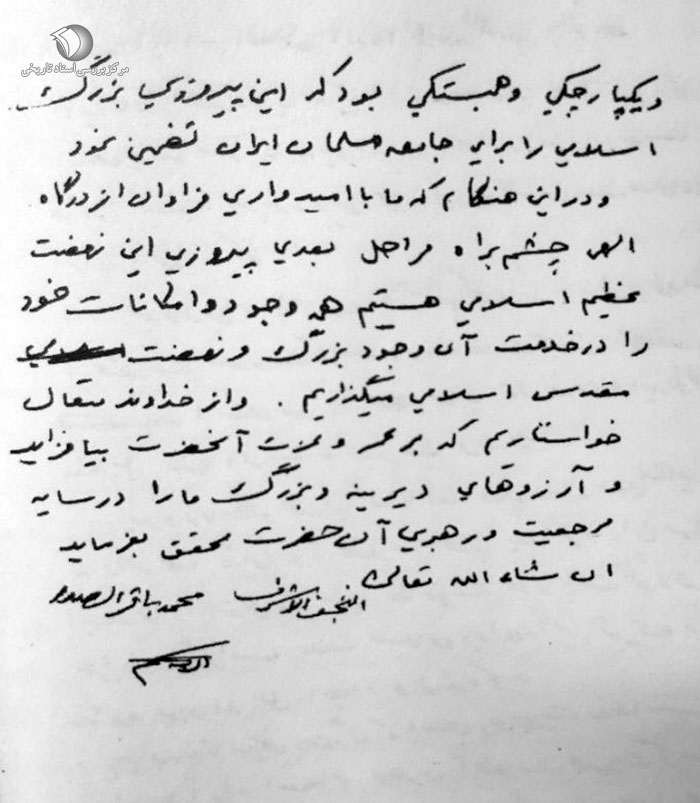 مرکز بررسی اسناد تاریخی
ویکپارچگی وهمبستگی بود که این پیروزی بزرگ
اسلامی را برای جامعه مسلمان ایران تضمین نمود
ودراین هنگام که ما با امیدواری فراوان از درگاه
الهی چشم براه مراحل بعدی پیروزی این نهضت
عظیم اسلامی هستیم همه وجود و امکانات خود
را درخدمت آن وجود بزرگ و نهضت اسلامی
مقدس اسلامی میگذاریم . واز خداوند متعال
خواستارم که بر عمر وعزت آنحضرت بیافزاید
و آرزوهای دیرینه وبزرگ مارا درسایه
مرجعیت ورهبری آن حضرت محقق بفرماید
ان شاء الله تعالی
النجف الاشرف محمد باقر الصدر